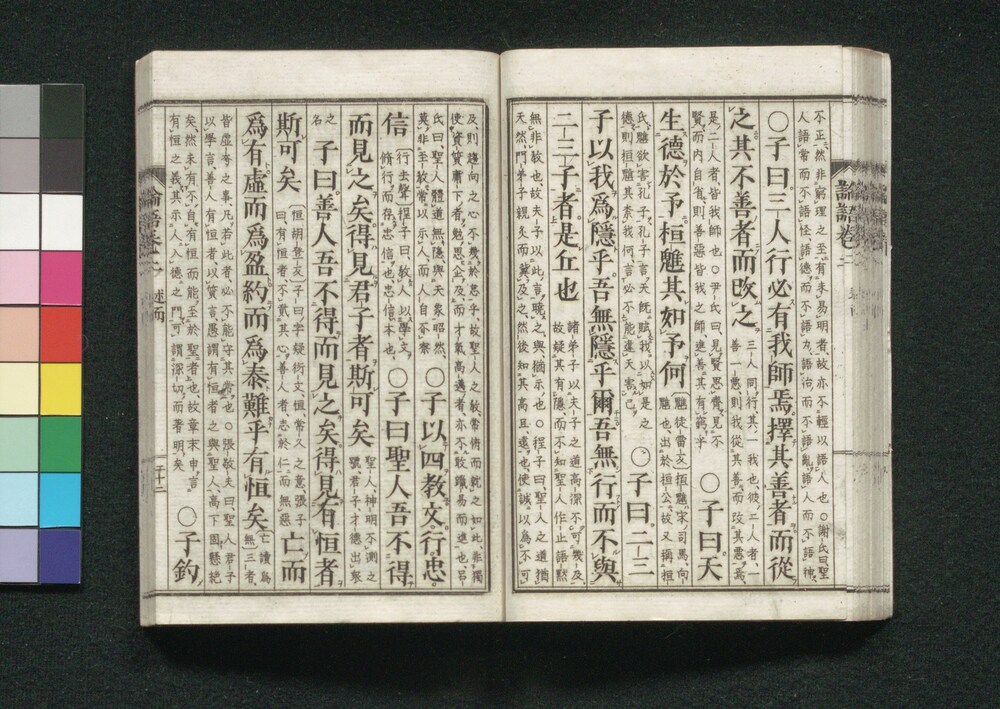 論語卷二
不正然非窮理之至有未易明者故亦不輕以語人也○謝氏曰聖
人語常而不語怪語德而不語力語治而不語亂語人而不語神
○子曰三人行必有我師焉擇其善者而從
之其不善者而改之
三人同行其一我也彼二人者一
善一惡則我從其善而改其惡焉
是二人者皆我師也○尹氏曰見賢思齊見不
賢而內自省則善惡皆我之師進善其有窮乎
○子曰天
生德於予桓魋其如予何
〔魋徒雷反〕桓魋宋司馬向
魋也出於桓公故又稱桓
氏魋欲害孔子孔子言天既賦我以如是之
德則桓魋其奈我何言必不能違天害己
○子曰二三
子以我爲隱乎吾無隱乎爾吾無行而不與
二三子者是丘也
諸弟子以夫子之道高深不可幾及
故疑其有隱而不知聖人作止語默
無非教也故夫子以此言曉之與猶示也○程子曰聖人之道猶
天然門弟子親炙而冀及之然後知其高且遠也使誠以爲不可
及則趨向之心不幾於怠乎故聖人之教常俯而就之如此非獨
使資質庸下者勉思企及而才氣高邁者亦不敢躐易而進也呂
氏曰聖人體道無隱與天象昭然
莫非至教常以示人而人自不察
○子以四教文行忠
信
〔行去聲〕程子曰教人以學文
脩行而存忠信也忠信本也
○子曰聖人吾不得
而見之矣得見君子者斯可矣
聖人神明不測之
號君子才德出衆
之
名
子曰善人吾不得而見之矣得見有恒者
斯可矣
〔恒胡登反〕子曰字疑衍文恒常久之意張子
曰有恒者不貳其心善人者志於仁而無惡
亡而
爲有虛而爲盈約而爲泰難乎有恒矣
〔亡讀爲
無〕三者
皆虛夸之事凡若此者必不能守其常也○張敬夫曰聖人君子
以學言善人有恒者以質言愚謂有恒者之與聖人高下固懸絕
矣然未有不自有恒而能至於聖者也故章末申言
有恒之義其示人入德之門可謂深切而著明矣
○子釣
論語卷二 述而